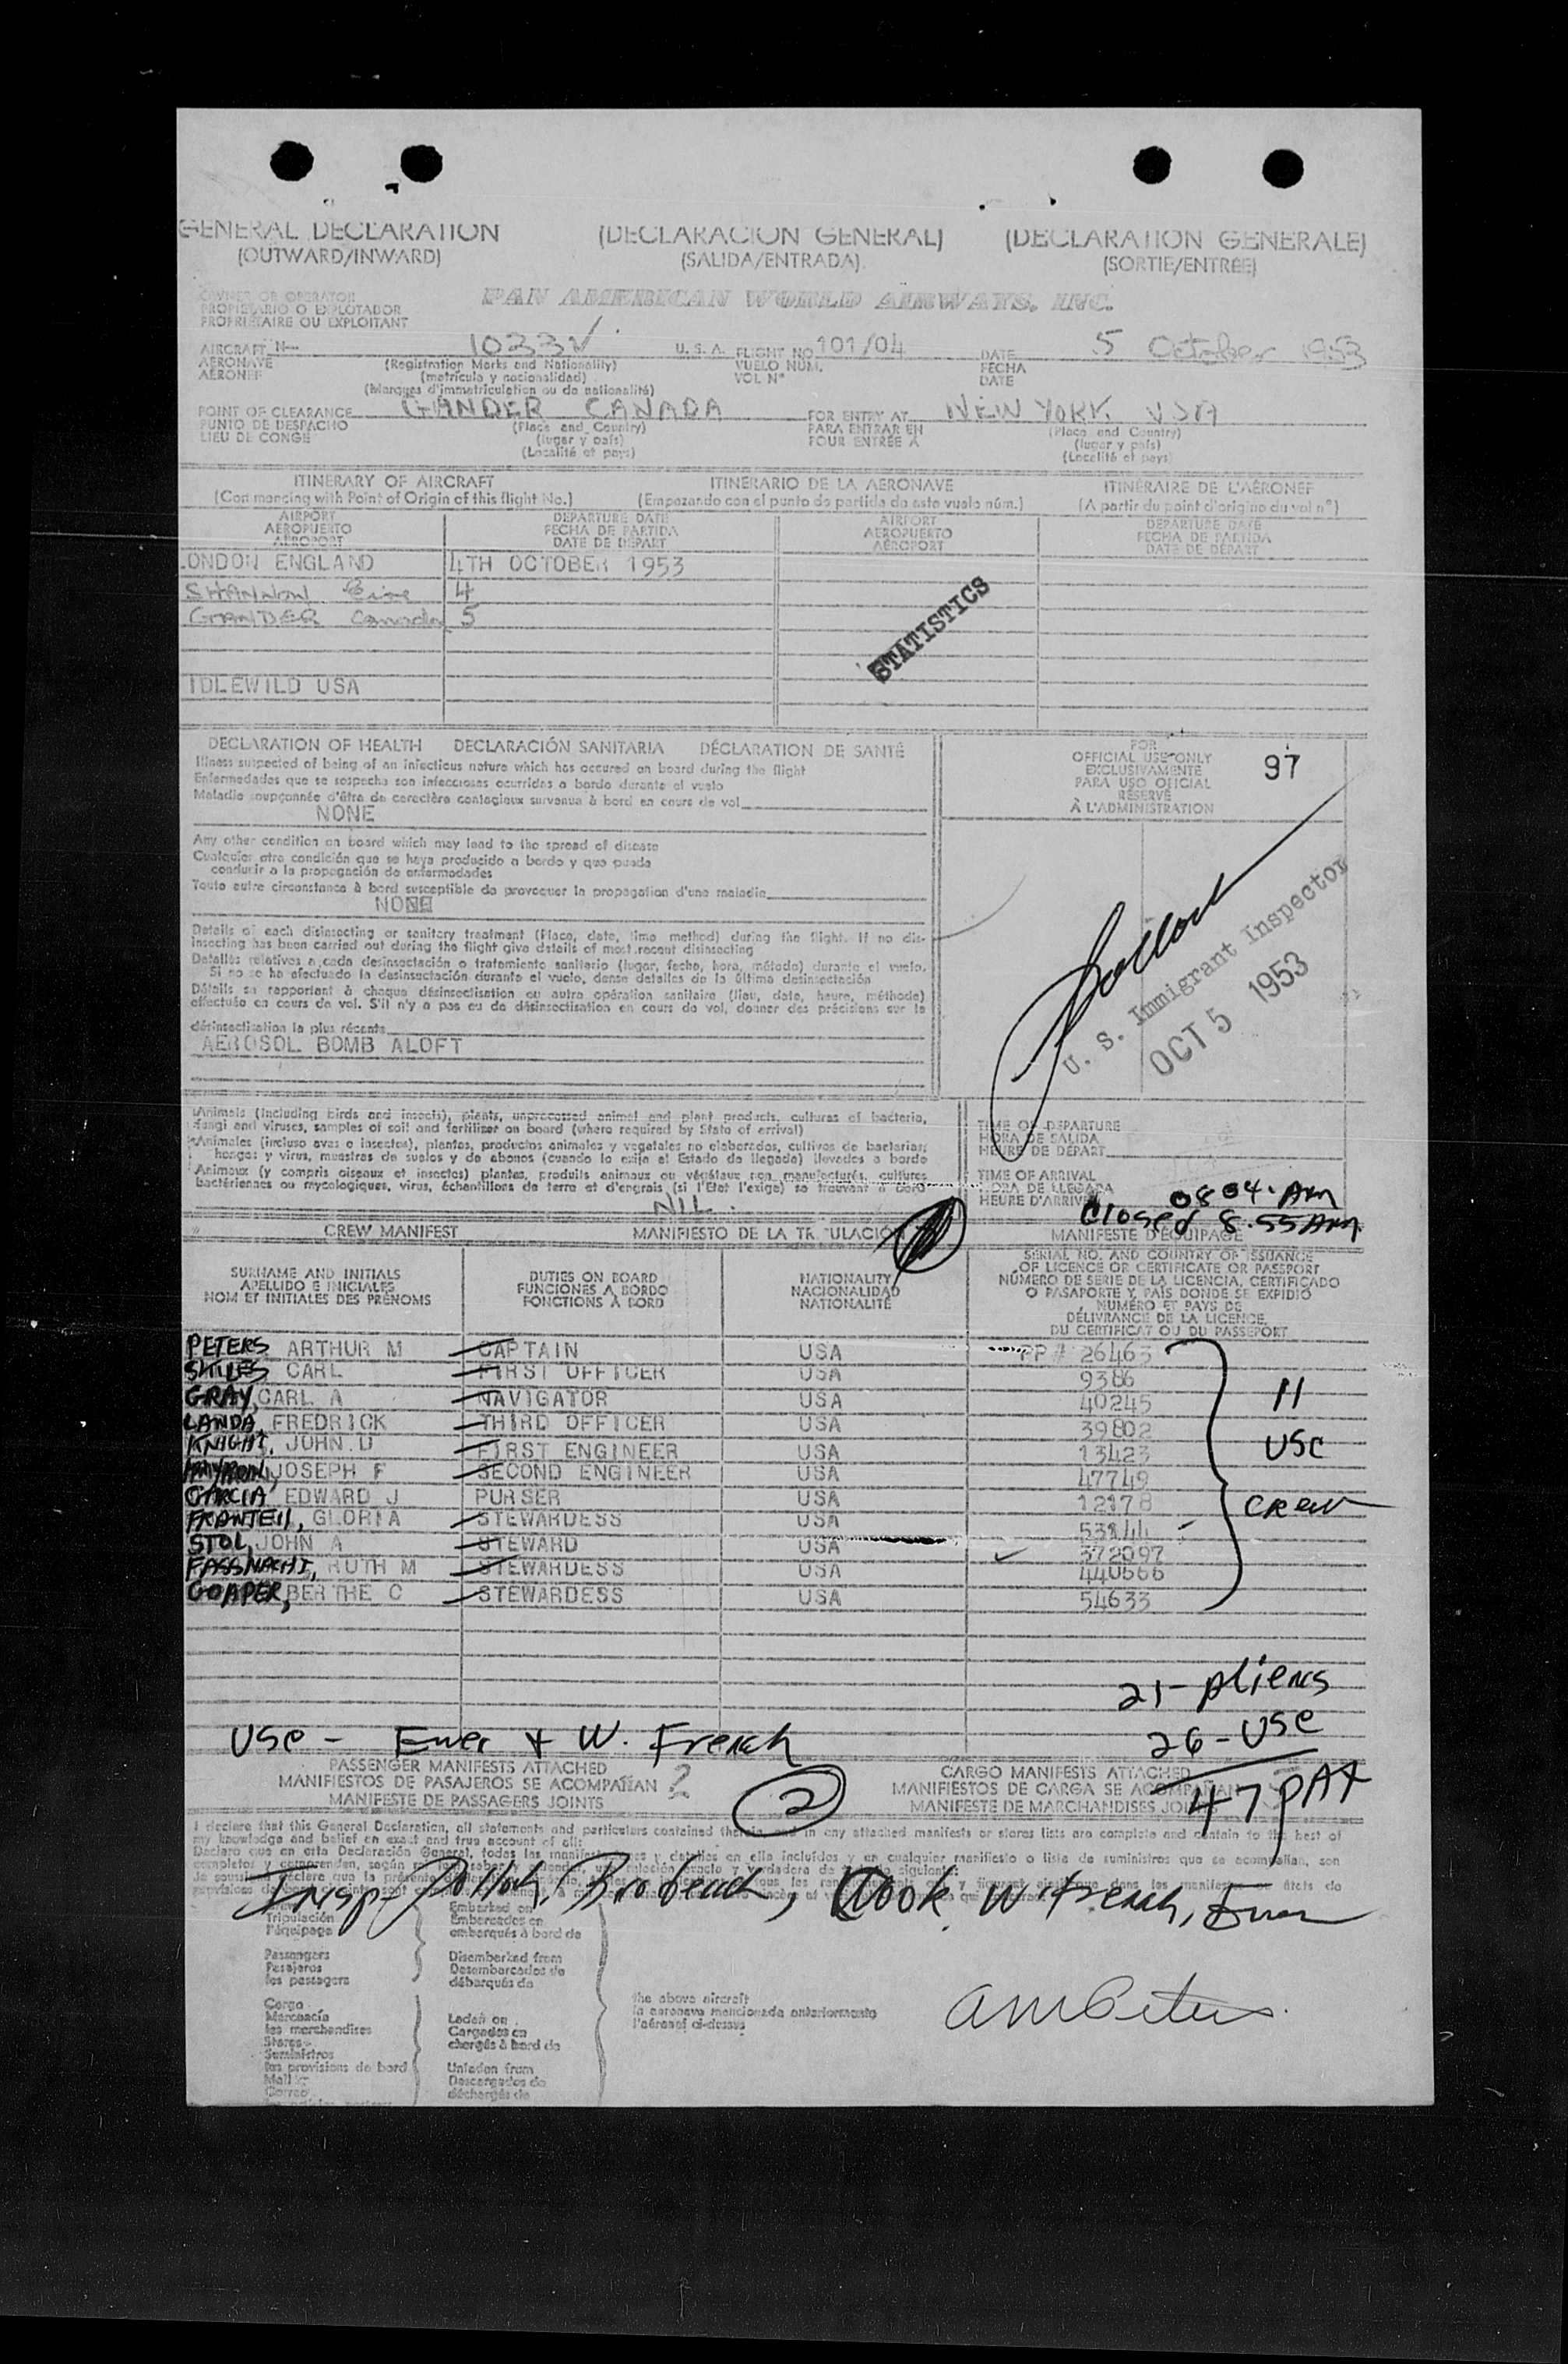 GENERAL DECLARATION (DECLARACION GENERAL) (DECLARATION GENERALE)
(OUTWARD/INWARD) (SALIDA/ENTRADA) (SORTIE/ENTREE)
OWNER OR OPERATOR
PROPIETARIO O EXPLOTADOR
PROPRIÉTAIRE OU EXPLOITANT
PAN AMERICAN WORLD AIRWAYS, INC.
AIRCRAFT N- 1033V U.S.A. FLIGHT NO 101/04 DATE 5 October 1953
AERONAVE (Registration Marks and Nationality) VUELO NUM. FECHA
AÉRONEF (matricula y nacionalidad) VOL Nº DATE
(Marques d'immatriculation ou de nationalité)
POINT OF CLEARANCE GANDER CANADA FOR ENTRY AT NEW YORK USA
PUNTO DE DESPACHO (Place and Country) PARA ENTRAR EN (Place and Country)
LIEU DE CONGÉ (lugar y país) POUR ENTRÉE À (lugar y país)
(Localité et pays) (Localité et pays)
ITINERARY OF AIRCRAFT ITINERARIO DE LA AERONAVE ITINÉRAIRE DE L'AÉRONEF
(Commencing with Point of Origin of this flight No.) (Empezando con el punto de partida de este vuelo núm.) (A partir du point d'origine du vol nº)
AIRPORT DEPARTURE DATE AIRPORT DEPARTURE DATE
AEROPUERTO FECHA DE PARTIDA AEROPUERTO FECHA DE PARTIDA
AÉROPORT DATE DE DÉPART AÉROPORT DATE DE DÉPART
LONDON ENGLAND 4TH OCTOBER 1953
SHANNON Eire 4
GANDER Canada 5
STATISTICS
IDLEWILD USA
DECLARATION OF HEALTH DECLARACIÓN SANITARIA DÉCLARATION DE SANTÉ
Illness suspected of being of an infectious nature which has occured on board during the flight
Enfermedades que se sospecha son infecciosas ocurridas a bordo durante el vuelo
Maladie soupçonnée d'être de caractère contagieux survenue à bord en cours de vol
NONE
FOR
OFFICIAL USE ONLY 97
EXCLUSIVAMENTE
PARA USO OFICIAL
RÉSERVÉ
À L'ADMINISTRATION
Any other condition on board which may lead to the spread of disease
Cualquier otra condición que se haya producido a bordo y que pueda
conducir a la propagación de enfermedades
Toute autre circonstance à bord susceptible de provoquer la propagation d'une maladie
NONE
Details of each disinsecting or sanitary treatment (Place, date, time method) during the flight. If no dis-
insecting has been carried out during the flight give details of most recent disinsecting
Detalles relativos a cada desinsectación o tratamiento sanitario (lugar, fecha, hora, método) durante el vuelo.
Si no se ha efectuado la desinsectación durante el vuelo, dense detalles de la última desinsectación
Détails se rapportant à chaque désinsectisation ou autre opération sanitaire (lieu, date, heure, méthode)
effectuée en cours de vol. S'il n'y a pas eu de désinsectisation en cours de vol, donner des précisions sur la
désinsectisation la plus récente
AEROSOL BOMB ALOFT
U. S. Immigrant Inspector
OCT 5 1953
Animals (including birds and insects), plants, unprocessed animal and plant products, cultures of bacteria,
fungi and viruses, samples of soil and fertilizer on board (where required by State of arrival)
Animales (incluso aves e insectos), plantas, productos animales y vegetales no elaborados, cultivos de bacterias,
hongos y virus, muestras de suelos y de abonos (cuando lo exija el Estado de llegada) llevados a bordo
Animaux (y compris oiseaux et insectes) plantes, produits animaux ou végétaux non manufacturés, cultures
bactériennes ou mycologiques, virus, échantillons de terre et d'engrais (si l'État l'exige) se trouvant à bord
NIL.
TIME OF DEPARTURE
HORA DE SALIDA
HEURE DE DÉPART
TIME OF ARRIVAL
HORA DE LLEGADA
HEURE D'ARRIVÉE 0804. AM
Closed 8.55 AM
CREW MANIFEST MANIFIESTO DE LA TRIPULACION MANIFESTE D'ÉQUIPAGE
SURNAME AND INITIALS DUTIES ON BOARD NATIONALITY
APELLIDO E INICIALES FUNCIONES A BORDO NACIONALIDAD
NOM ET INITIALES DES PRÉNOMS FONCTIONS À BORD NATIONALITÉ
SERIAL NO. AND COUNTRY OF ISSUANCE
OF LICENCE OR CERTIFICATE OR PASSPORT
NÚMERO DE SERIE DE LA LICENCIA, CERTIFICADO
O PASAPORTE Y PAÍS DONDE SE EXPIDIÓ
NUMÉRO ET PAYS DE
DÉLIVRANCE DE LA LICENCE,
DU CERTIFICAT OU DU PASSEPORT
PETERS ARTHUR M CAPTAIN USA PP # 26463
CARL FIRST OFFICER USA 9386
GRAY, CARL A NAVIGATOR USA 40245 11
LANDA, FREDRICK THIRD OFFICER USA 39802
KNIGHT, JOHN D FIRST ENGINEER USA 13423 USC
JOSEPH F SECOND ENGINEER USA 47749
GARCIA EDWARD J PURSER USA 12178 CREW
GLORIA STEWARDESS USA
STOL, JOHN A STEWARD USA 372097
FASSNACHT, RUTH M STEWARDESS USA 440666
BERTHE C STEWARDESS USA 54633
21- Aliens
USC - Ewer + W. French 26-USC
47 PAX
PASSENGER MANIFESTS ATTACHED CARGO MANIFESTS ATTACHED
MANIFIESTOS DE PASAJEROS SE ACOMPAÑAN 2 MANIFIESTOS DE CARGA SE ACOMPAÑAN
MANIFESTE DE PASSAGERS JOINTS MANIFESTE DE MARCHANDISES JOINTS
2
I declare that this General Declaration, all statements and particulars contained therein, and in any attached manifests or stores lists are complete and contain to the best of
my knowledge and belief an exact and true account of all:
Insp- Pollock, Brobeck, Cook W. French, Ewer
Tripulación Embarked on
l'équipage Embarcados en
embarqués à bord de
Passengers Disembarked from
Pasajeros Desembarcados de
les passagers débarqués de
Cargo
Mercancía Laden on
les merchandises Cargados en
Stores chargés à bord de
Suministros
les provisions de bord Unladen from
Mail Descargados de
Correo déchargés de
the above aircraft
la aeronave mencionada anteriormente
l'aéronef ci-dessus
AM Peters